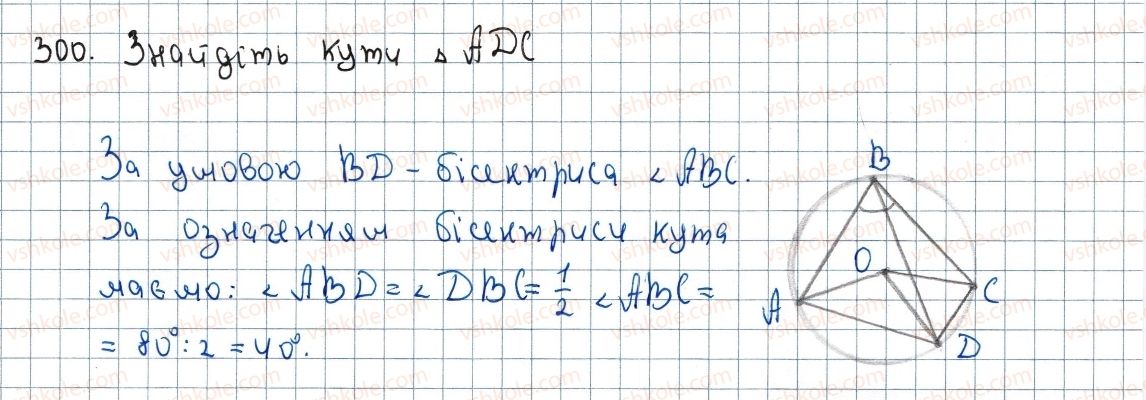 300. Знайдіть кути △ ADC
За умовою BD - бісектриса ∠ ABC.
За означенням бісектриси кута
маємо: ∠ ABD = ∠ DBC = 1/2 ∠ ABC =
= 80° : 2 = 40°.
B
O
A
C
D
vshkole.com